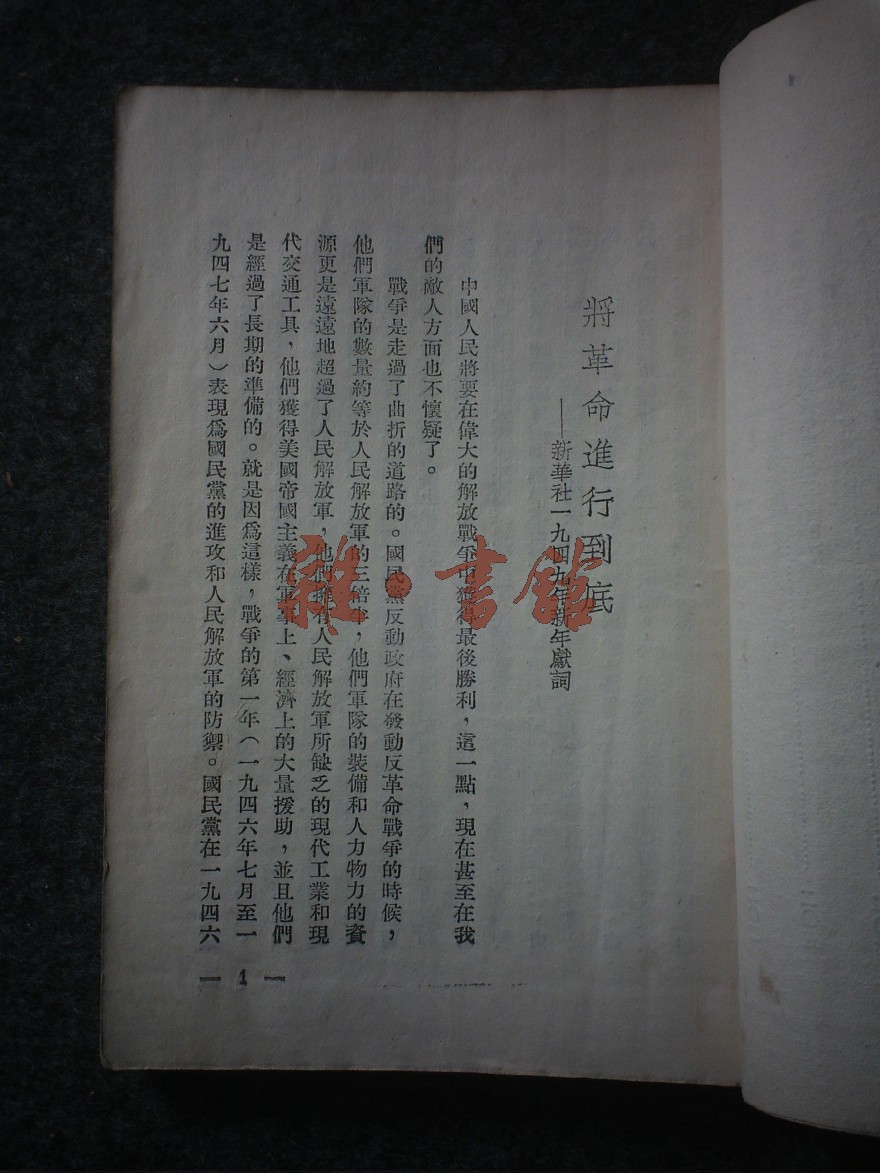 將革命進行到底
——新華社一九四九年新年獻詞
中國人民將要在偉大的解放戰爭中獲得最後勝利，這一點，現在甚至在我
們的敵人方面也不懷疑了。
戰爭是走過了曲折的道路的。國民黨反動政府在發動反革命戰爭的時候，
他們軍隊的數量約等於人民解放軍的三倍半，他們軍隊的裝備和人力物力的資
源更是遠遠地超過了人民解放軍，他們擁有人民解放軍所缺乏的現代工業和現
代交通工具，他們獲得美國帝國主義在軍事上、經濟上的大量援助，並且他們
是經過了長期的準備的。就是因爲這樣，戰爭的第一年（一九四六年七月至一
九四七年六月）表現爲國民黨的進攻和人民解放軍的防禦。國民黨在一九四六
— 1 —
雜·書館